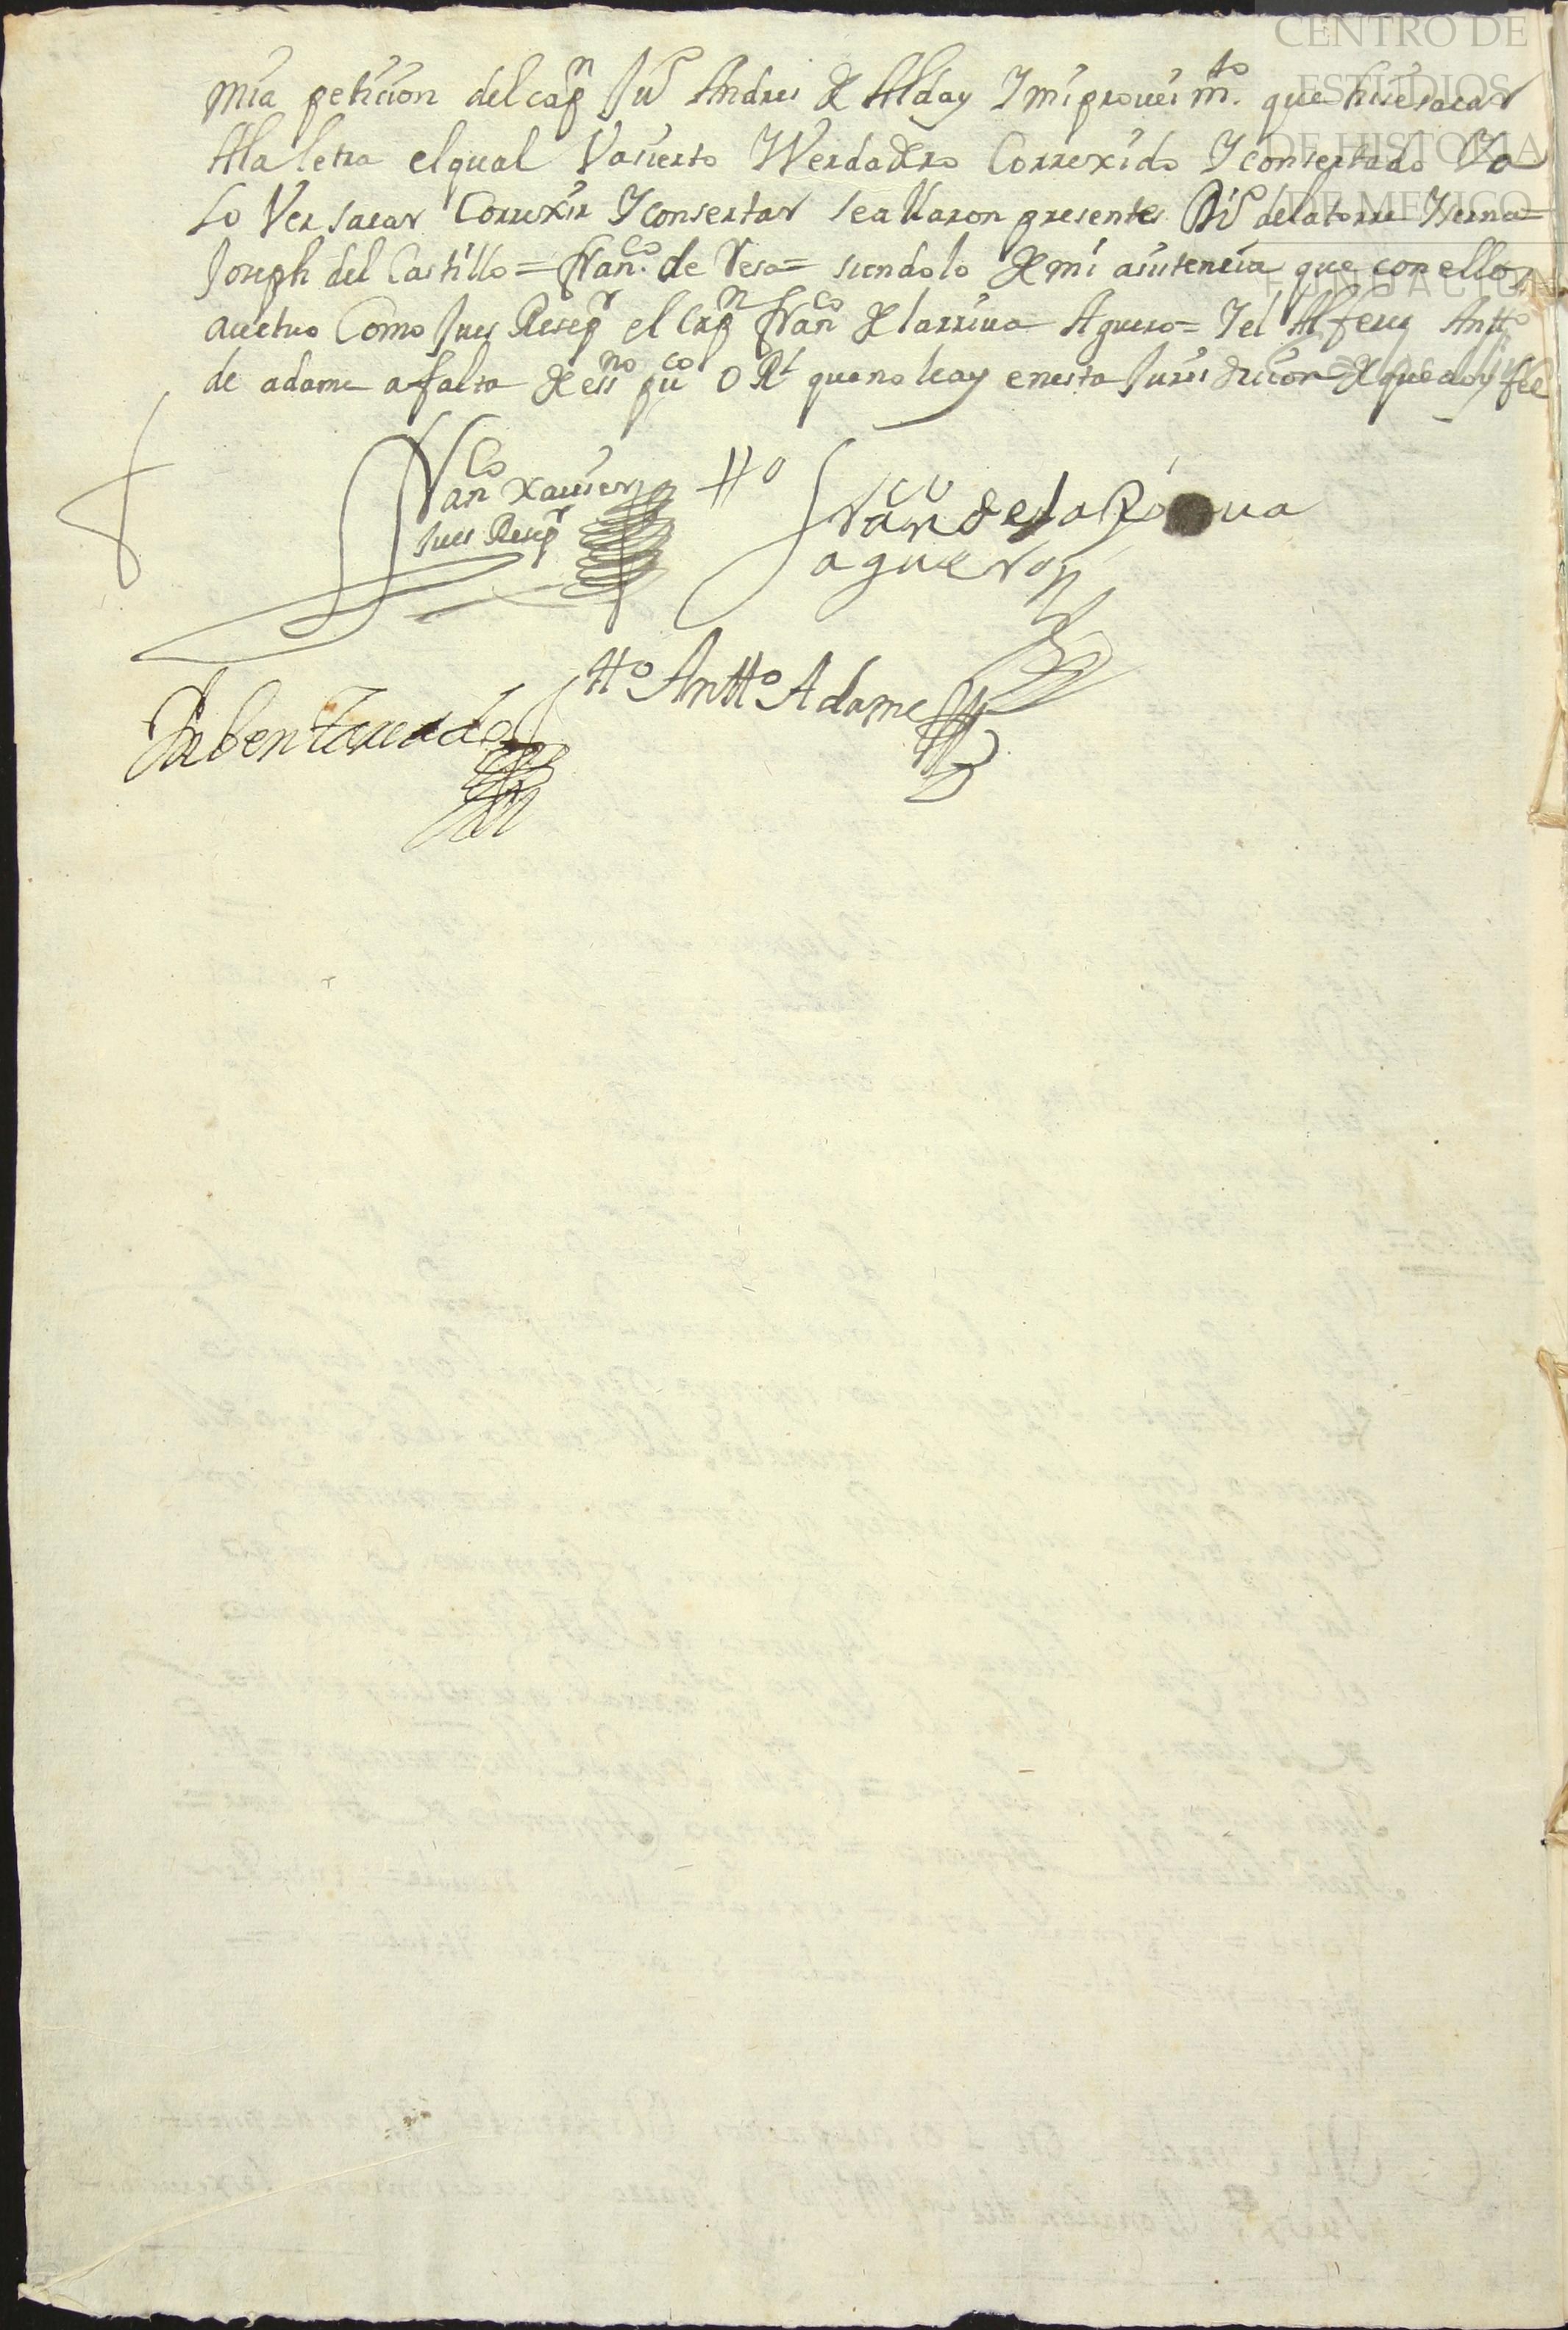 CENTRO DE
ESTUDIOS
DE HISTORIA
DE MEXICO
FUNDACION
mia peticion del capn Juo Andres de Alday I mi proueimto. que hise sacar
Ala letra el qual Va sierto I Verdadero Correxido I consertado Ya
Lo Ver sacar Correxir I consertar se allaron presentes de la torre
Joseph del Castillo = Franco. de Vesa = siendolo de mi asistencia que con ellos
auctuo Como Jues Resepr el Capn Franco de larriua Aguero = I el Alferes Antto
de adame a falta de essno puco O Rl que no le ay en esta Jurisdiccion de que doy fee
Franco Xauier
Jues Resepr
tto Franco de la Riua
aguero
tto Antto Adame